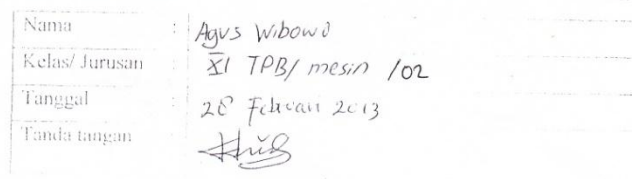 Nama : Agus Wibowo
Kelas/ Jurusan : XI TPB/ mesin /02
Tanggal : 28 Februari 2013
Tanda tangan :